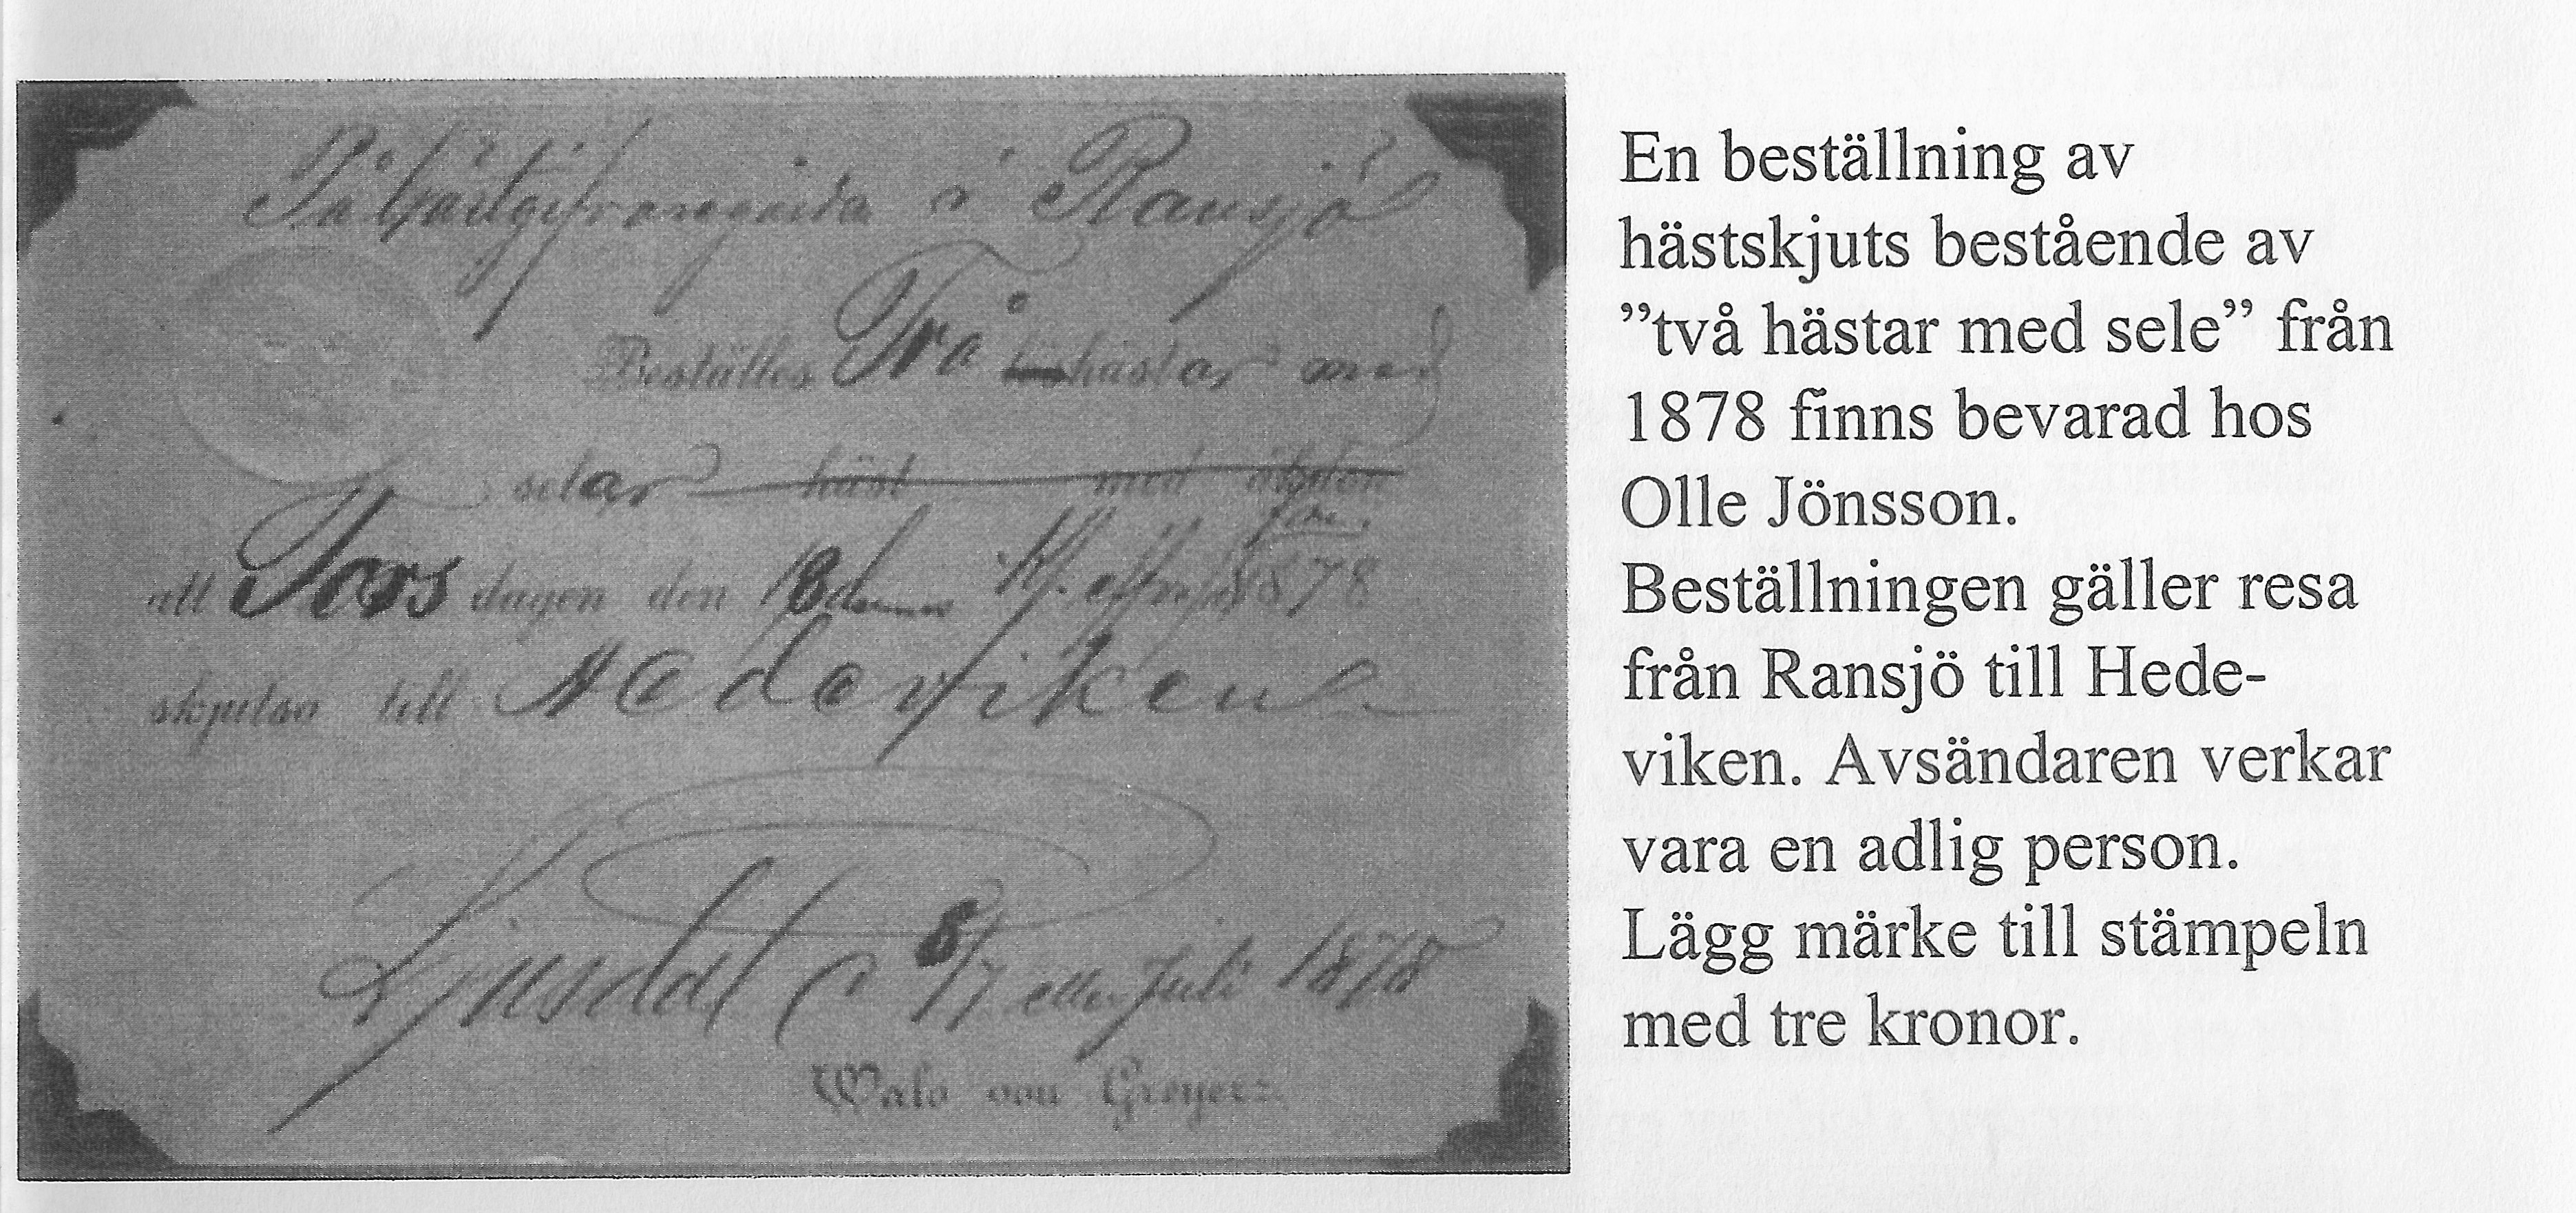 På Gästgifvaregården i Ransjö
Beställes Två löshästar med
selar häst med åkdon
till Tors dagen den 18de Kl. eftm. 1878
skjutsa till Hedeviken
Ljusdal d 8/7 eller Juli 1878
Walo von Greyerz.
En beställning av
hästskjuts bestående av
”två hästar med sele” från
1878 finns bevarad hos
Olle Jönsson.
Beställningen gäller resa
från Ransjö till Hede-
viken. Avsändaren verkar
vara en adlig person.
Lägg märke till stämpeln
med tre kronor.